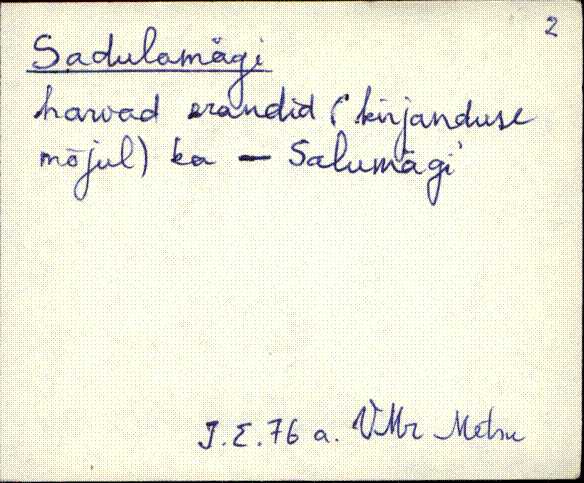 2
Sadulamägi
harvad erandid (kirjanduse
mõjul) ka — Salumägi
J.E. 76 a. VMr Metsu